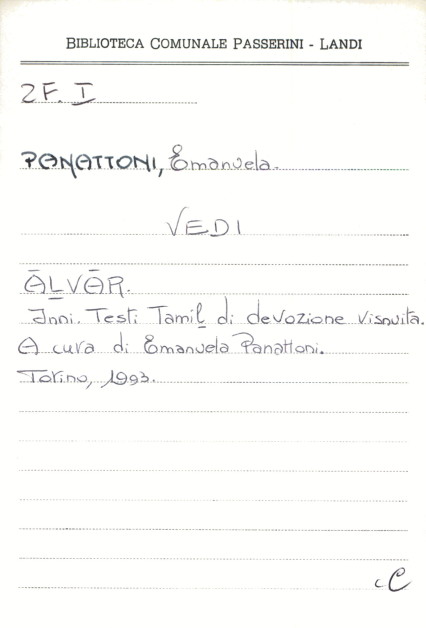 BIBLIOTECA COMUNALE PASSERINI - LANDI
2F. I
PANATTONI, Emanuela.
VEDI
ĀḺVĀR.
Inni. Testi Tamiḻ di devozione visnuita.
A cura di Emanuela Panattoni.
Torino, 1993.